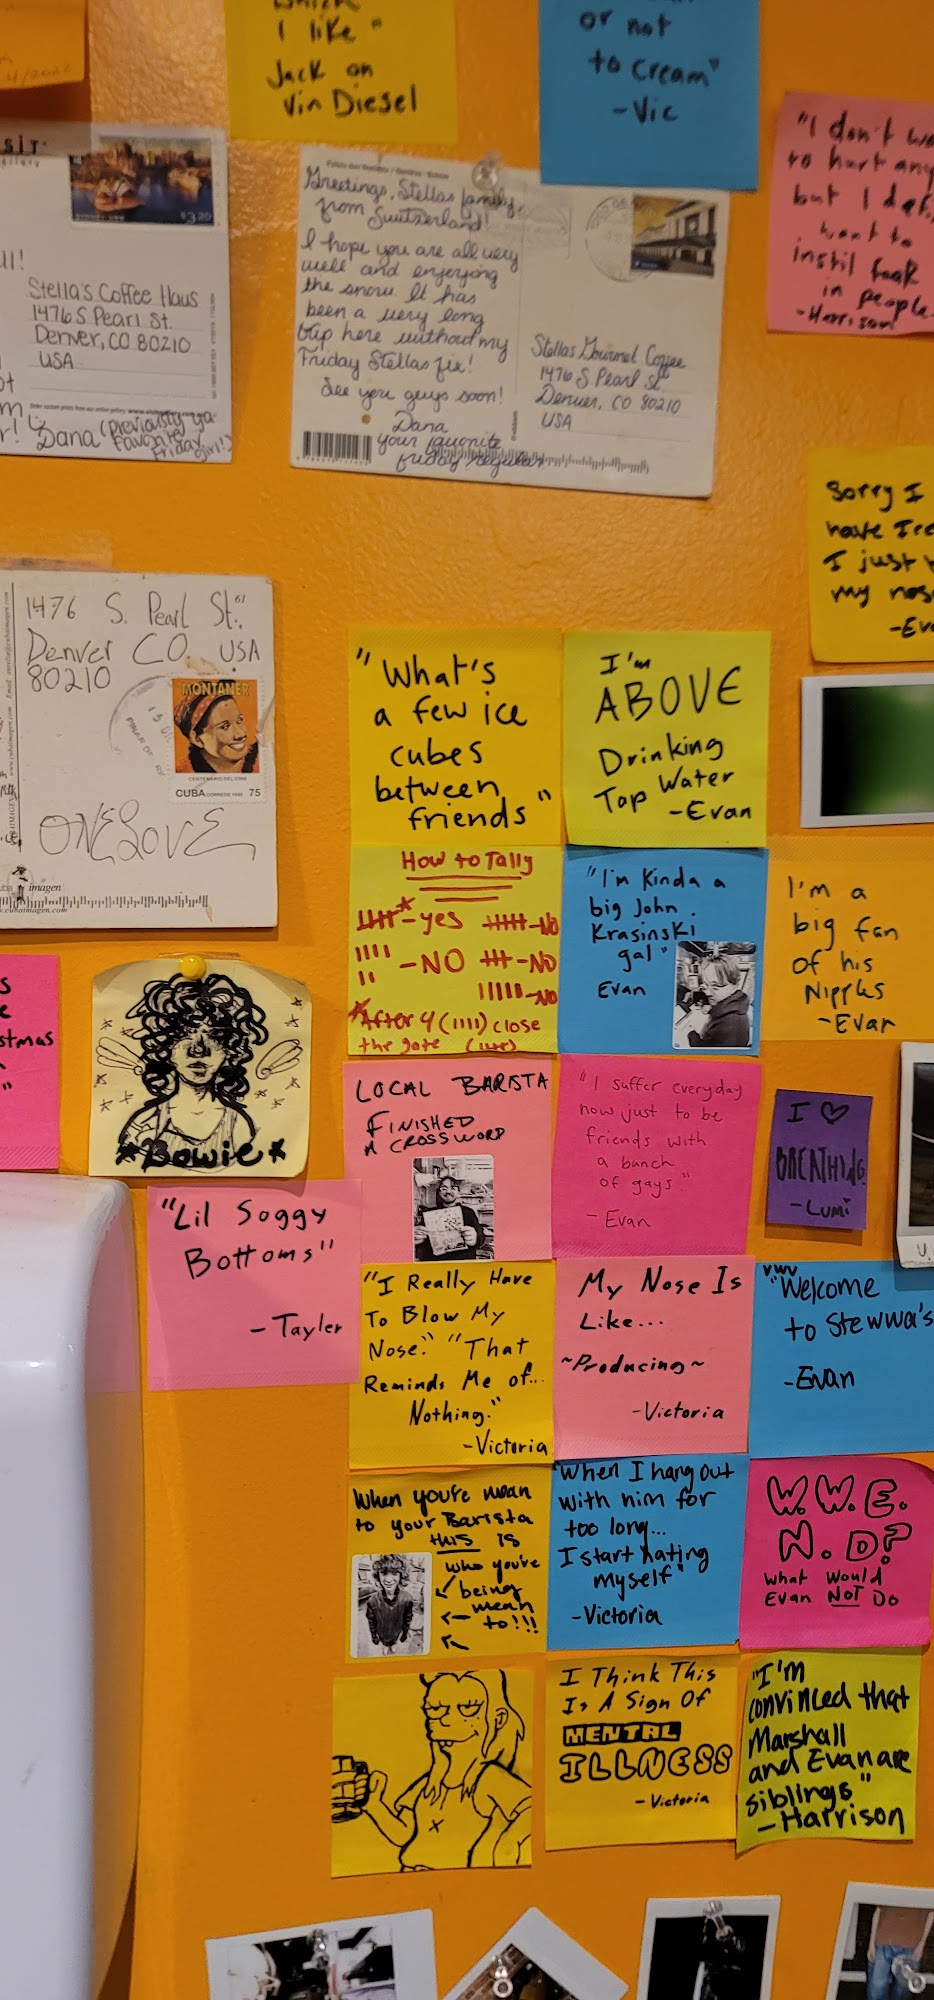 which
I like"
Jack on
Vin Diesel
or not
to cream"
-Vic
"I don't
to hurt
but I
want to
instil
in people.
-Harrison
$3.20
Stella's Coffee Haus
1476 S Pearl St.
Denver, CO 80210
USA
Dana (previously ya
favorite
Friday
girl!)
Greetings, Stellas family,
from Switzerland!
I hope you are all very
well and enjoying
the snow. It has
been a very long
trip here without my
Friday Stellas fix!
See you guys soon!
Dana
your favorite
friday regular
Stellas Gourmet Coffee
1476 S Pearl St.
Denver, CO 80210
USA
Sorry I
have
I just
my nose
1476 S. Pearl St.,
Denver CO. USA
80210
MONTANER
CENTENARIO DEL CINE
CUBA CORREOS 75
ONE LOVE
imagen
"What's
a few ice
cubes
between
friends"
I'm
ABOVE
Drinking
Tap Water
-Evan
How to Tally
-yes -NO
-NO -NO
-NO
After 4 (||||) close
the gate
"I'm Kinda a
big John
Krasinski
gal"
Evan
I'm a
big fan
of his
Nipples
-Evan
*Bowie*
LOCAL BARISTA
FINISHED
A CROSSWORD
"I suffer everyday
now just to be
friends with
a bunch
of gays."
- Evan
I ♡
BREATHING
-LUMi
"Lil Soggy
Bottoms"
-Tayler
"I Really Have
To Blow My
Nose." "That
Reminds Me of...
Nothing."
-Victoria
My Nose Is
Like...
~Producing~
-Victoria
"Welcome
to Stewwa's
-Evan
When you're mean
to your Barista
this is
who you're
being
mean
to!!!
"When I hang out
with him for
too long...
I start hating
myself"
-Victoria
W.W.E.
N.D?
What Would
Evan NOT Do
I Think This
Is A Sign Of
MENTAL
ILLNESS
-Victoria
"I'm
convinced that
Marshall
and Evan are
siblings"
-Harrison